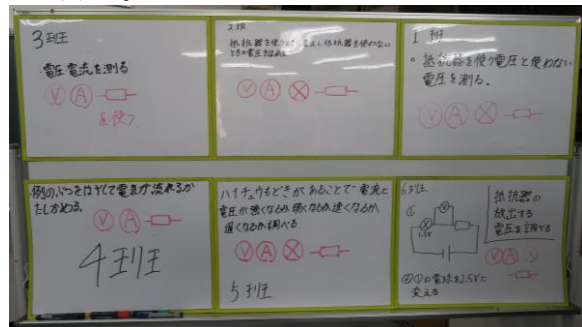 3班
・電圧・電流を測る
V A
を使う
2班
抵抗器を使うときの電圧と抵抗器を使わない
ときの電圧をはかる
V A
1班
抵抗器を使う電圧と使わない
電圧を測る。
V A
例のぶつをはずして電気が流れるか
たしかめる。
V A
4班
ハイチュウもどきがあることで電流と
電圧が強くなるか弱くなるか速くなるか
遅くなるか調べる
V A
5班
6班
①
V
1.5V
抵抗器の
放出する
電圧を調べる
V A
②①の電球を2.5Vに
変える